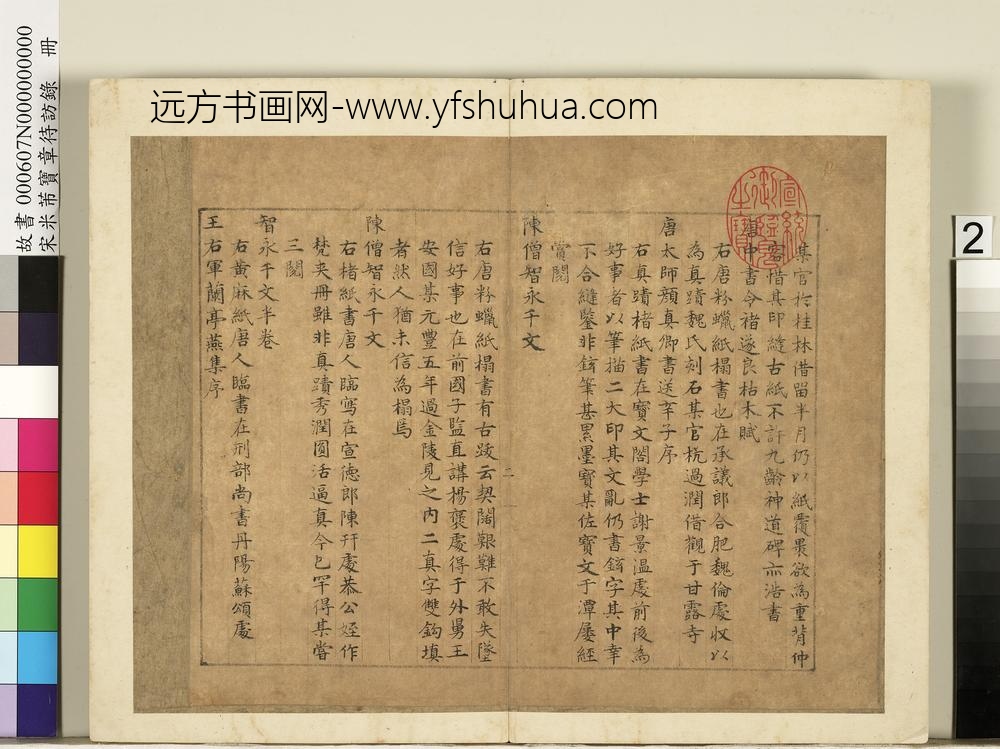 远方书画网-www.yfshuhua.com
故書 000607N000000000
宋米芾寶章待訪錄 冊
2
某官於桂林借留半月仍以紙覆裹欲為重背仲
容惜其印縫古紙不許九齡神道碑亦浩書
唐中書令褚遂良枯木賦
右唐粉蠟紙搨書也在承議郎合肥魏倫處收以
為真蹟魏氏刻石某官杭過潤借觀于甘露寺
唐太師顏真卿書送辛子序
右真蹟楮紙書在寶文閣學士謝景溫處前後為
好事者以筆描二大印其文亂仍書鉉字其中幸
不合縫鑒非鉉筆甚累墨寶某佐寶文于潭屢經
賞閱
陳僧智永千文
右唐粉蠟紙搨書有古跋云契闊艱難不敢失墜
信好事也在前國子監直講楊褒處得于外舅王
安國某元豐五年過金陵見之內二真字雙鈎填
者然人猶未信為搨焉
陳僧智永千文
右楮紙書唐人臨寫在宣德郎陳开處恭公姪作
梵夾冊雖非真蹟秀潤圓活逼真今已罕得某嘗
三閱
智永千文半卷
右黃麻紙唐人臨書在刑部尚書丹陽蘇頌處
王右軍蘭亭燕集序
二
宣統御覽之寶